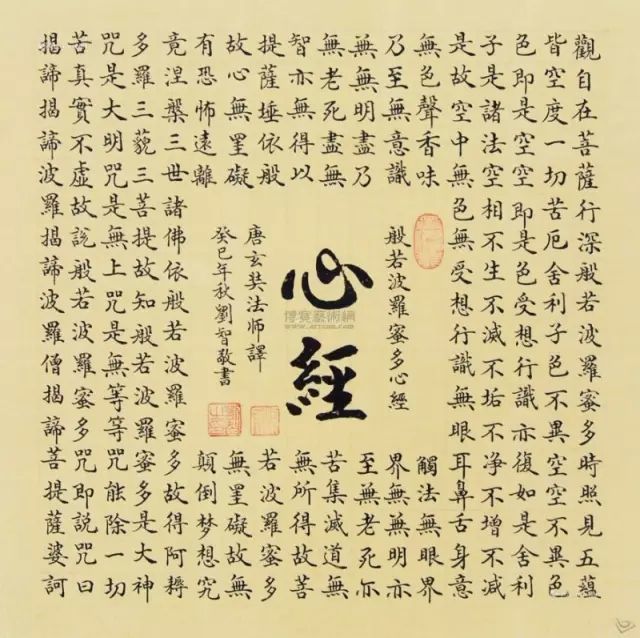 觀自在菩薩行深般若波羅蜜多時照見五蘊
皆空度一切苦厄舍利子色不異空空不異色
色即是空空即是色受想行識亦復如是舍利
子是諸法空相不生不滅不垢不净不增不減
是故空中無色無受想行識無眼耳鼻舌身意
無色聲香味
觸法無眼界
乃至無意識
界無無明亦
無無明盡乃
至無老死亦
無老死盡無
苦集滅道無
智亦無得以
無所得故菩
提薩埵依般
若波羅蜜多
故心無罣礙
無罣礙故無
有恐怖遠離
顛倒梦想究
竟涅槃三世諸佛依般若波羅蜜多故得阿耨
多羅三藐三菩提故知般若波羅蜜多是大神
咒是大明咒是無上咒是無等等咒能除一切
苦真實不虛故說般若波羅蜜多咒即說咒曰
揭諦揭諦波羅揭諦波羅僧揭諦菩提薩婆訶
般若波羅蜜多心經
心經
博寶藝術網
唐玄奘法師譯
癸巳年秋劉智敬書